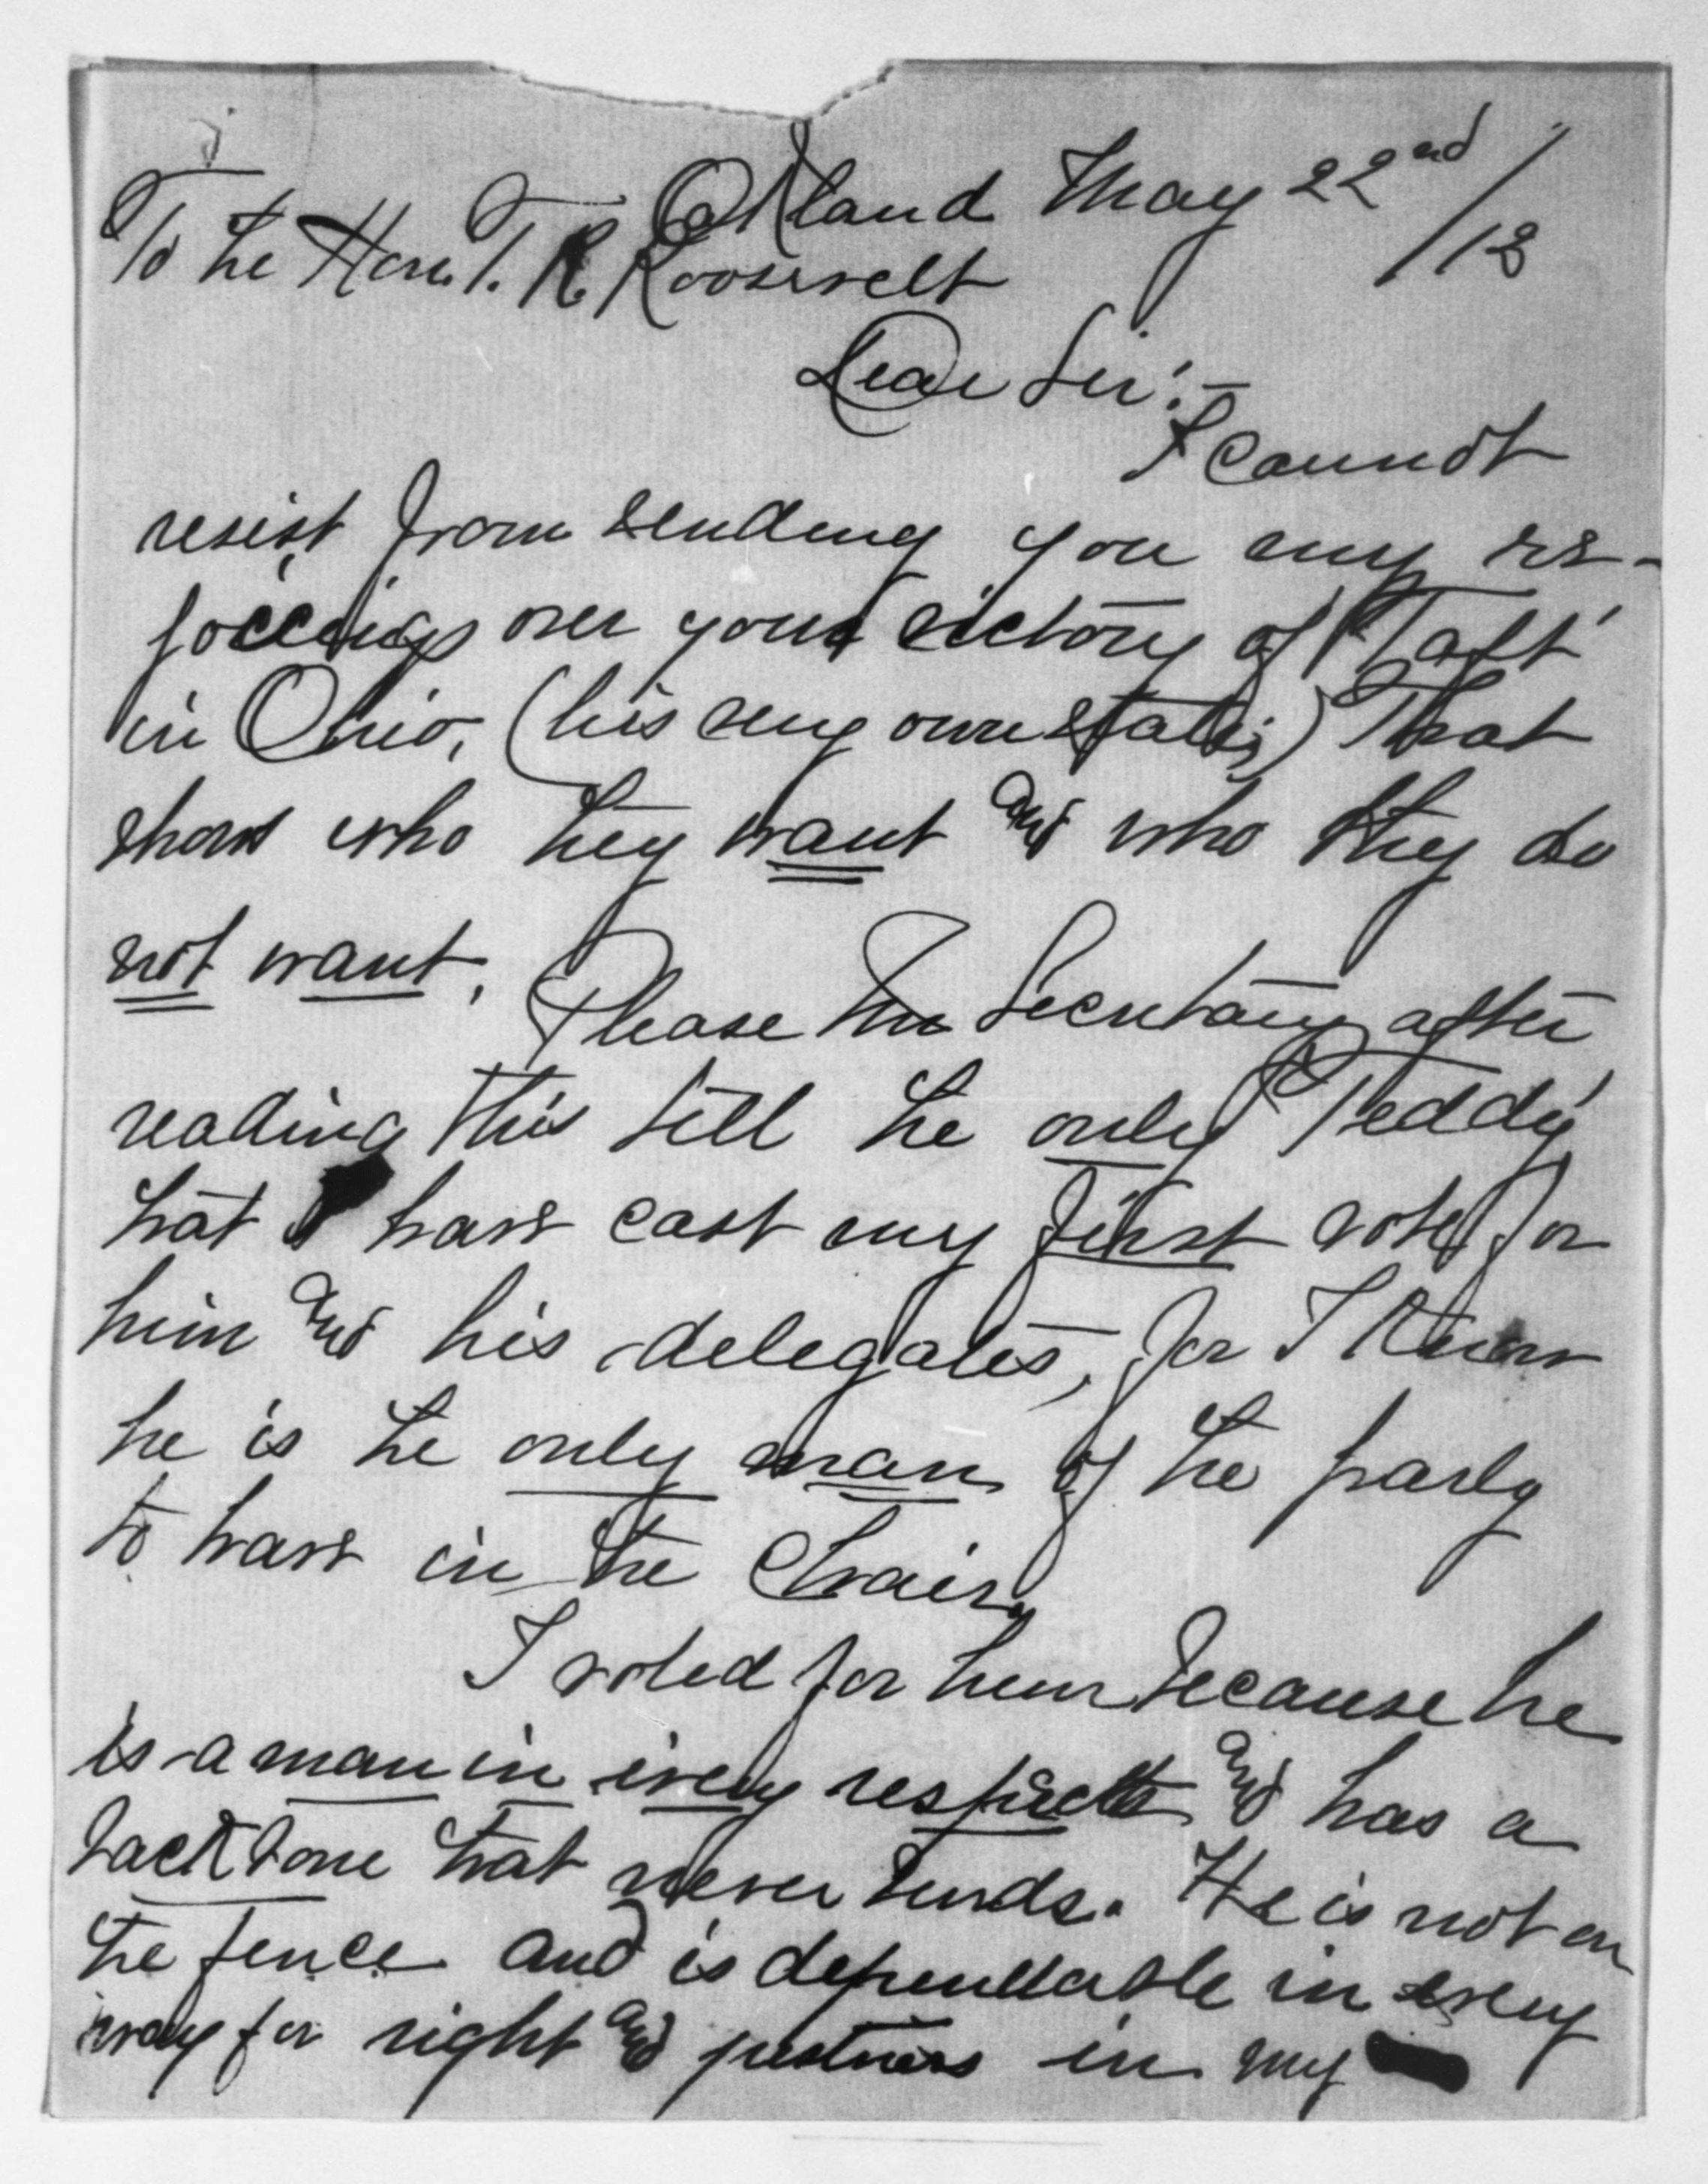 Oakland May 22nd/12
To the Hon. T. R. Roosevelt
Dear Sir:-
I cannot
resist from sending you my re-
joicings over your victory of "Taft"
in Ohio, (his very own state;) That
shows who they want and who they do
not want. Please Mr Secretary after
reading this tell the only "Teddy"
that I have cast my first vote for
him and his delegates, for I know
he is the only man of the party
to have in the Chair.
I voted for him because he
is a man in every respect and has a
backbone that never bends. He is not on
the fence and is dependable in every
way for right and justness in my